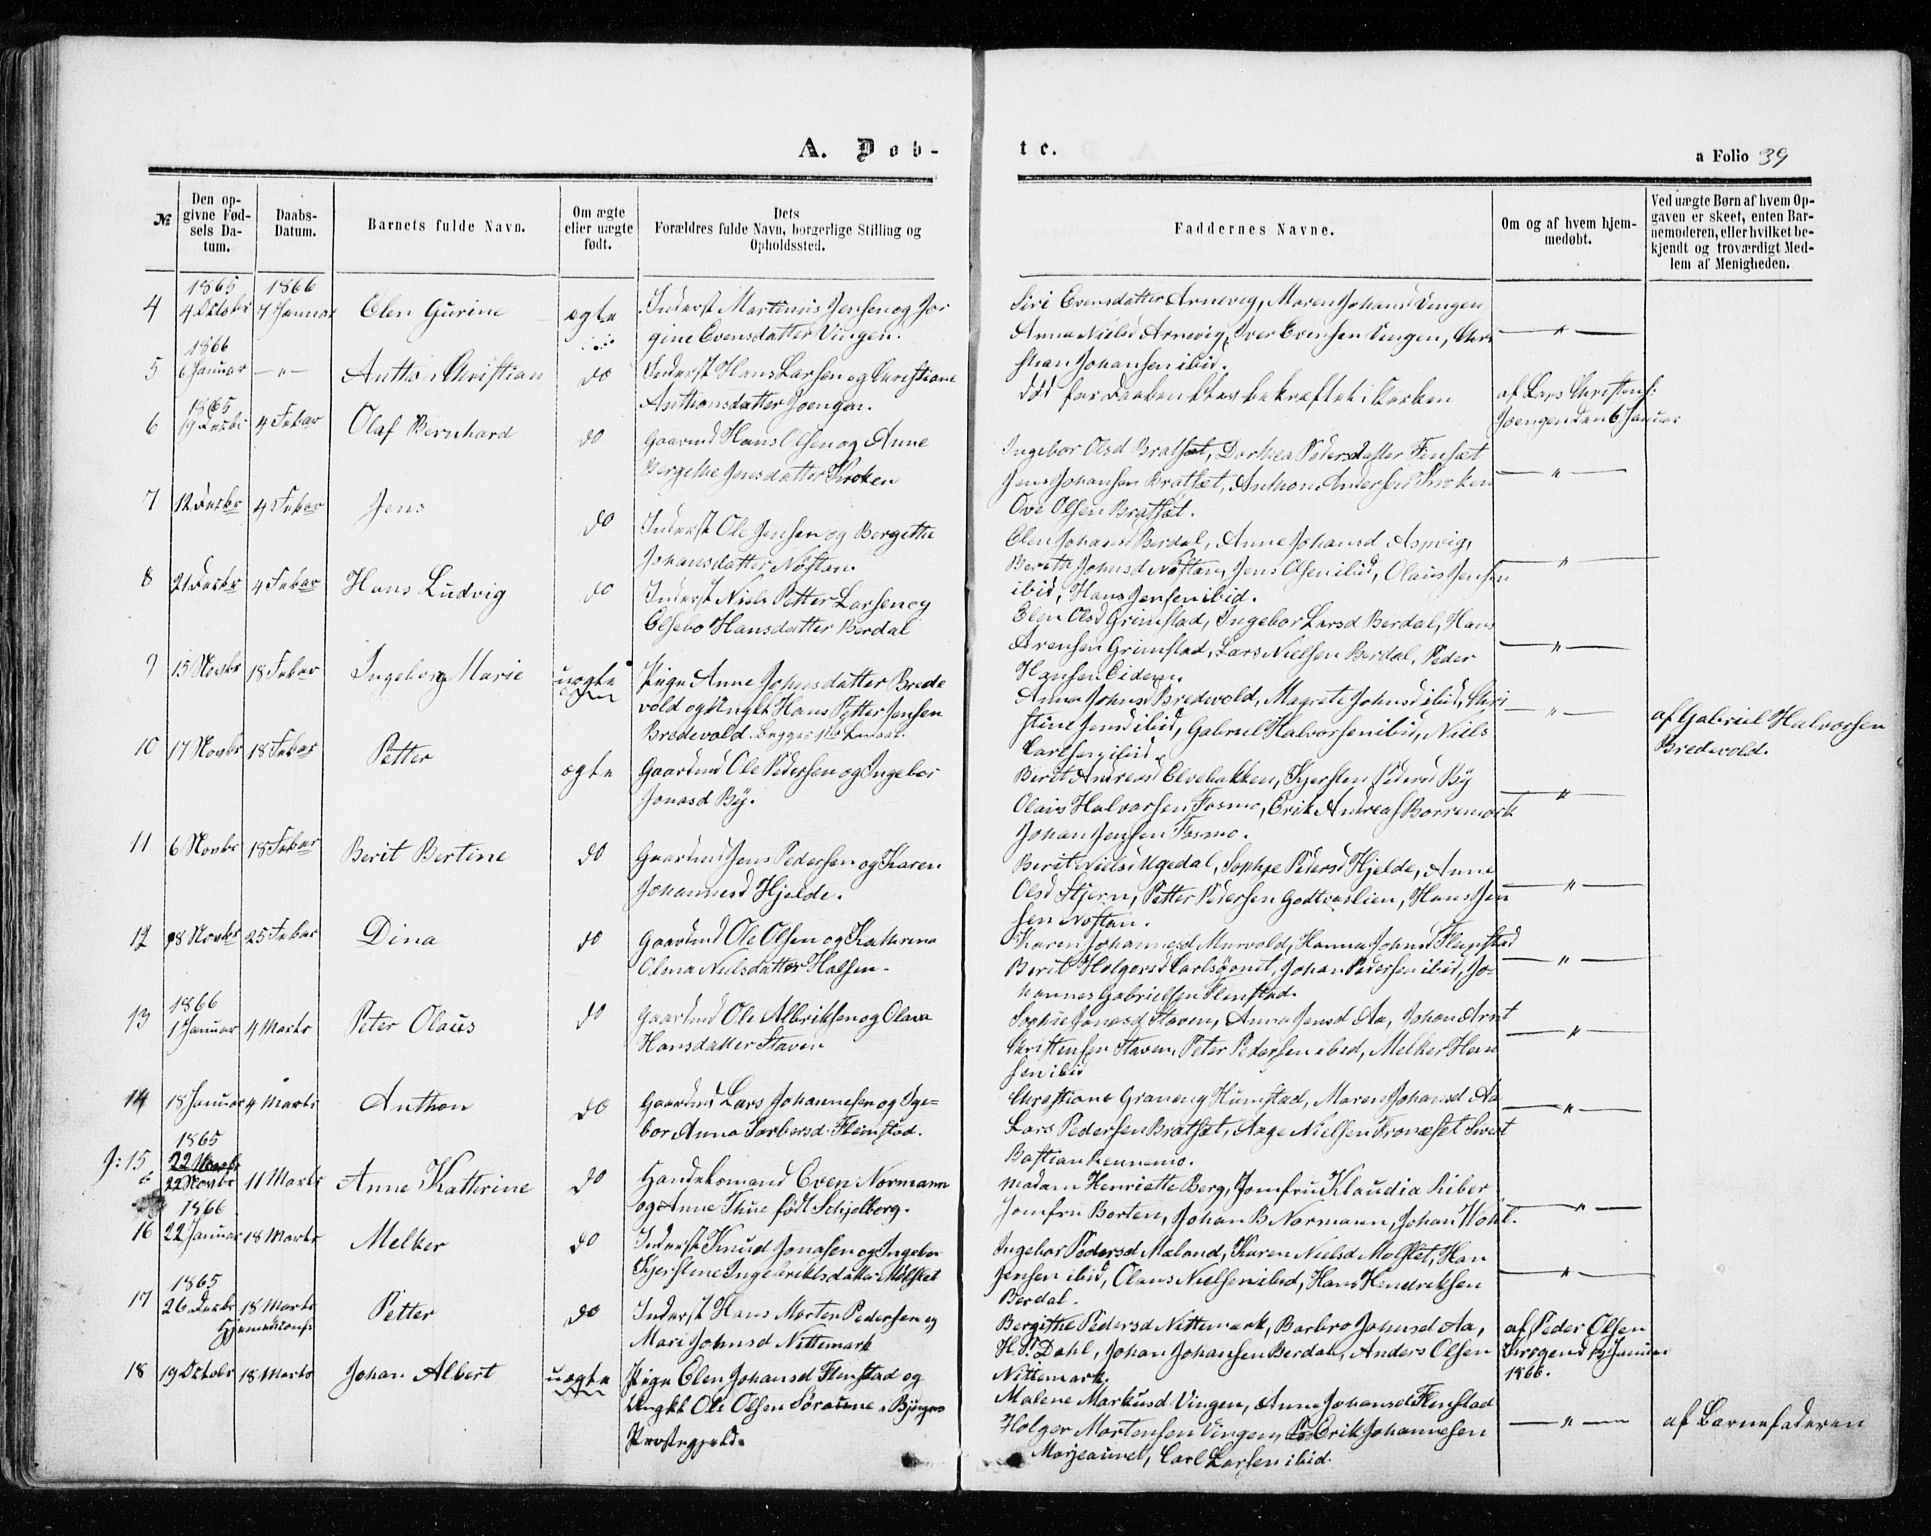 A. Døb-
te.
a Folio 39
№
Den opgivne Fødsels Datum.
Daabs-Datum.
Barnets fulde Navn.
Om ægte eller uægte født.
Dets Forældres fulde Navn, borgerlige Stilling og Opholdssted.
Faddernes Navne.
Om og af hvem hjemmedøbt.
Ved uægte Børn af hvem Opgaven er skeet, enten Barnemoderen, eller hvilket bekjendt og troværdigt Medlem af Menigheden.
1865 1866
4 4 Oktobr 7 Januar Elen Gurine ægte Inderst Martinus Jensen og Jor
gine Evensdatter Vingen.
Siri Evensdatter Arnevig, Maren Johansd Vingen
Anna Nielsd Arnevig, Iver Evensen Vingen, Chri
stian Johansen ibid. — " —
1866
5 6 Januar — " — Anthon Christian do Inderst Hans Larsen og Christiane
Anthonsdatter Joengen.
død før Daaben blev bekræftet i Kirken
af Lars Christens:
Joengen den 6 Januar
1865
6 19 Decbr 4 Febar Olaf Bernhard do Gaardmd Hans Olsen og Anne
Bergithe Jensdatter Kroken
Ingebor Olsd Bratset, Dorthea Pedersdatter Finset
Jens Johansen Bratset, Anthon Andersen Kroken
Ove Olsen Bratset. — " —
7 12 Decbr 4 Febar Jens do Inderst Ole Jensen og Bergitha
Johansdatter Nøstan
Elen Johansd Berdal, Anne Johansd Aspvig,
Berith Johnsd Nøstan, Jens Olsen ibid, Olaus Jensen
ibid, Hans Jensen ibid. — " —
8 21 Decbr 4 Febar Hans Ludvig do Inderst Niels Petter Larsen og
Elsebo Hansdatter Berdal
Elen Olsd Grimstad, Ingebor Larsd Berdal, Hans
Arensen Grimstad, Lars Nielsen Berdal, Peder
Hansen Eidem. — " —
9 15 Novbr 18 Febar Ingeborg Marie uægte Pige Anne Johnsdatter Brede
vold og Ungk Hans Petter Jensen
Bredevold.
Anna Johnsd Bredevold, Magrete Johnsd ibid, Chri
stine Jensd ibid, Gabriel Halvorsen ibid, Niels
Carlsen ibid. — " —
af Gabriel Halvorsen
Bredevold.
10 17 Novbr 18 Febar Petter ægte Gaardmd Ole Pedersen og Ingebor
Jonasd By.
Berit Andreasd Elvebakken, Kjersten Pedersd By
Olais Halvorsen Fosmo, Erik Andreas Borremark
Johan Jensen Fosmo. — " —
11 6 Novbr 18 Febar Berit Bertine do Gaardmd Jens Pedersen og Karen
Johannesd Hjelde.
Berit Nielsd Ugedal, Sophie Pedersd Hjelde, Anne
Olsd Stjern, Petter Pedersen Godtvaslien, Hans Jen
sen Nøstan. — " —
12 18 Novbr 25 Febar Dina do Gaardmd Ole Olsen og Kathrina
Olena Nielsdatter Halsen.
Karen Johannesd Murvold, Hanna Johnsd Flenstad
Berit Holgersd Carlsønet, Johan Pedersen ibid, Jo-
hannes Gabrielsen Flenstad. — " —
1866
13 1 Januar 4 Marts Peter Olaus do Gaardmd Ole Albriktsen og Olava
Hansdatter Staven
Sophie Jonasd Staven, Anna Jensd Aa, Johan Arnt
Christensen Staven, Peter Pedersen ibid, Melker Han
sen ibid — " —
14 18 Januar 4 Marts Anthon do Gaardmd Lars Johannesen og Inge-
bor Anna Torbersd Flenstad.
Christiane Graneng Humstad, Maren Johansd Aa
Lars Pedersen Bratset, Aage Nielsen Fronæset
Bastian Rennemo. — " —
1865
15 22 Novbr 11 Marts Anne Kathrine do Handelsmand Even Normann
og Anne Thue født Schjelberg.
Madam Henriette Berg, Jomfru Klaudia Riber
Jomfru Borten, Johan B Normann, Johan Wohl. — " —
1866
16 22 Januar 18 Marts Melker do Inderst Knud Jonasen og Ingebor
Kjerstine Ingebriktsdatter Mølslet
Ingebor Pedersd Meland, Karen Nielsd Mølslet, Han
Jensen ibid, Olaus Nielsen ibid, Hans Hendriksen
Berdal. — " —
1865
17 26 Decbr 18 Marts Petter do Inderst Hans Morten Pedersen og
Mari Johnsd Nittemark
Bergithe Pedersd Nittemark, Barbro Johnsd Aa,
H. P. Dahl, Johan Johansen Berdal, Anders Olsen
Nittemark.
af Peder Olsen
Januar
1866.
18 19 Oktobr 18 Marts Johan Albert uægte Pige Elen Johansd Flenstad og
Ungkl Ole Olsen Søraune, Bjugns
Prestegjeld.
Malene Markusd Vingen, Anne Johansd Flenstad
Holger Mortensen Vingen, Erik Johannesen
Morjeaunet, Carl Larsen ibid. — " —
af Barnefaderen